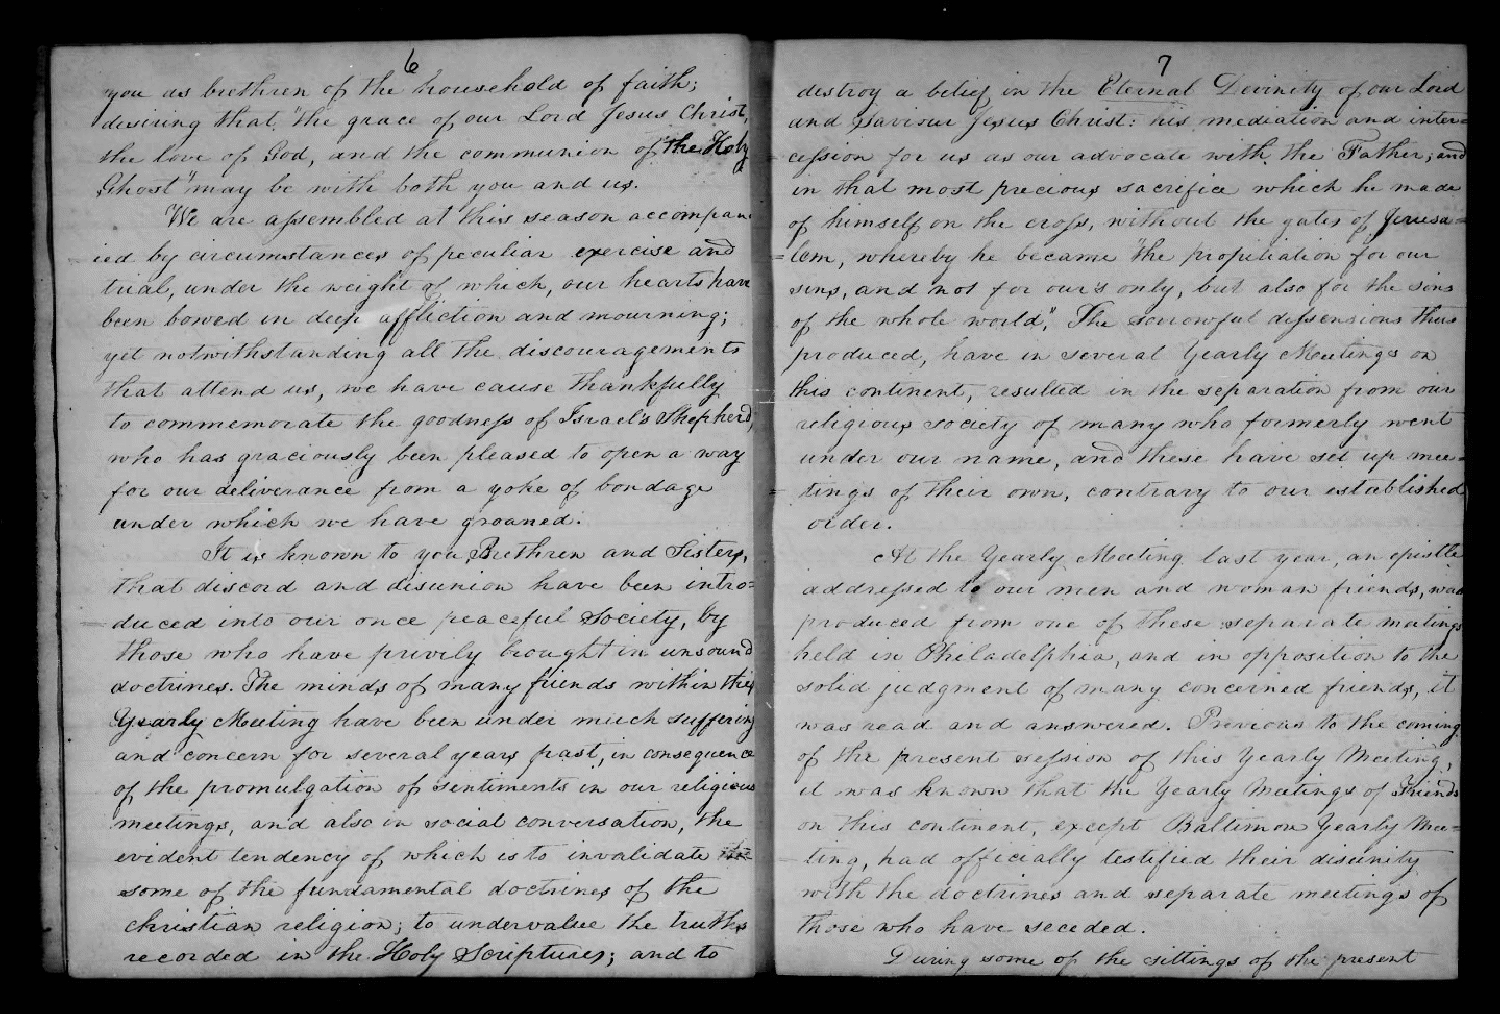 6
you as brethren of the household of faith;
desiring that, "the grace of our Lord Jesus Christ,
the love of God, and the communion of the Holy
Ghost" may be with both you and us.
We are assembled at this season accompan
ied by circumstances of peculiar exercise and
trial, under the weight of which, our hearts have
been bowed in deep affliction and mourning;
yet notwithstanding all the discouragements
that attend us, we have cause thankfully
to commemorate the goodness of Israel's Shepherd,
who has graciously been pleased to open a way
for our deliverance from a yoke of bondage
under which we have groaned.
It is known to you Brethren and Sisters,
that discord and disunion have been intro=
duced into our once peaceful Society, by
those who have privily brought in unsound
doctrines. The minds of many friends within this
Yearly Meeting have been under much suffering
and concern for several years past, in consequence
of the promulgation of sentiments in our religious
meetings, and also in social conversation, the
evident tendency of which is to invalidate
some of the fundamental doctrines of the
christian religion; to undervalue the truths
recorded in the Holy Scriptures; and to
7
destroy a belief in the Eternal Divinity of our Lord
and Saviour Jesus Christ: his mediation and inter=
cession for us as our advocate with the Father; and
in that most precious sacrifice which he made
of himself on the cross, without the gates of Jerusa=
=lem, whereby he became "the propitiation for our
sins, and not for our's only, but also for the sins
of the whole world," The sorrowful dissensions thus
produced, have in several Yearly Meetings on
this continent, resulted in the separation from our
religious society of many who formerly went
under our name, and these have set up mee=
=tings of their own, contrary to our established
order.
At the Yearly Meeting last year, an epistle
addressed to our men and woman friends, was
produced from one of these separate meetings
held in Pheladelphia, and in opposition to the
solid judgment of many concerned friends, it
was read and answered. Previous to the coming
of the present session of this Yearly Meeting,
it was known that the Yearly Meetings of Friends
on this continent, except Baltimon Yearly Mee=
ting, had officially testified their disunity
with the doctrines and separate meetings of
those who have seceded.
During some of the sittings of the present